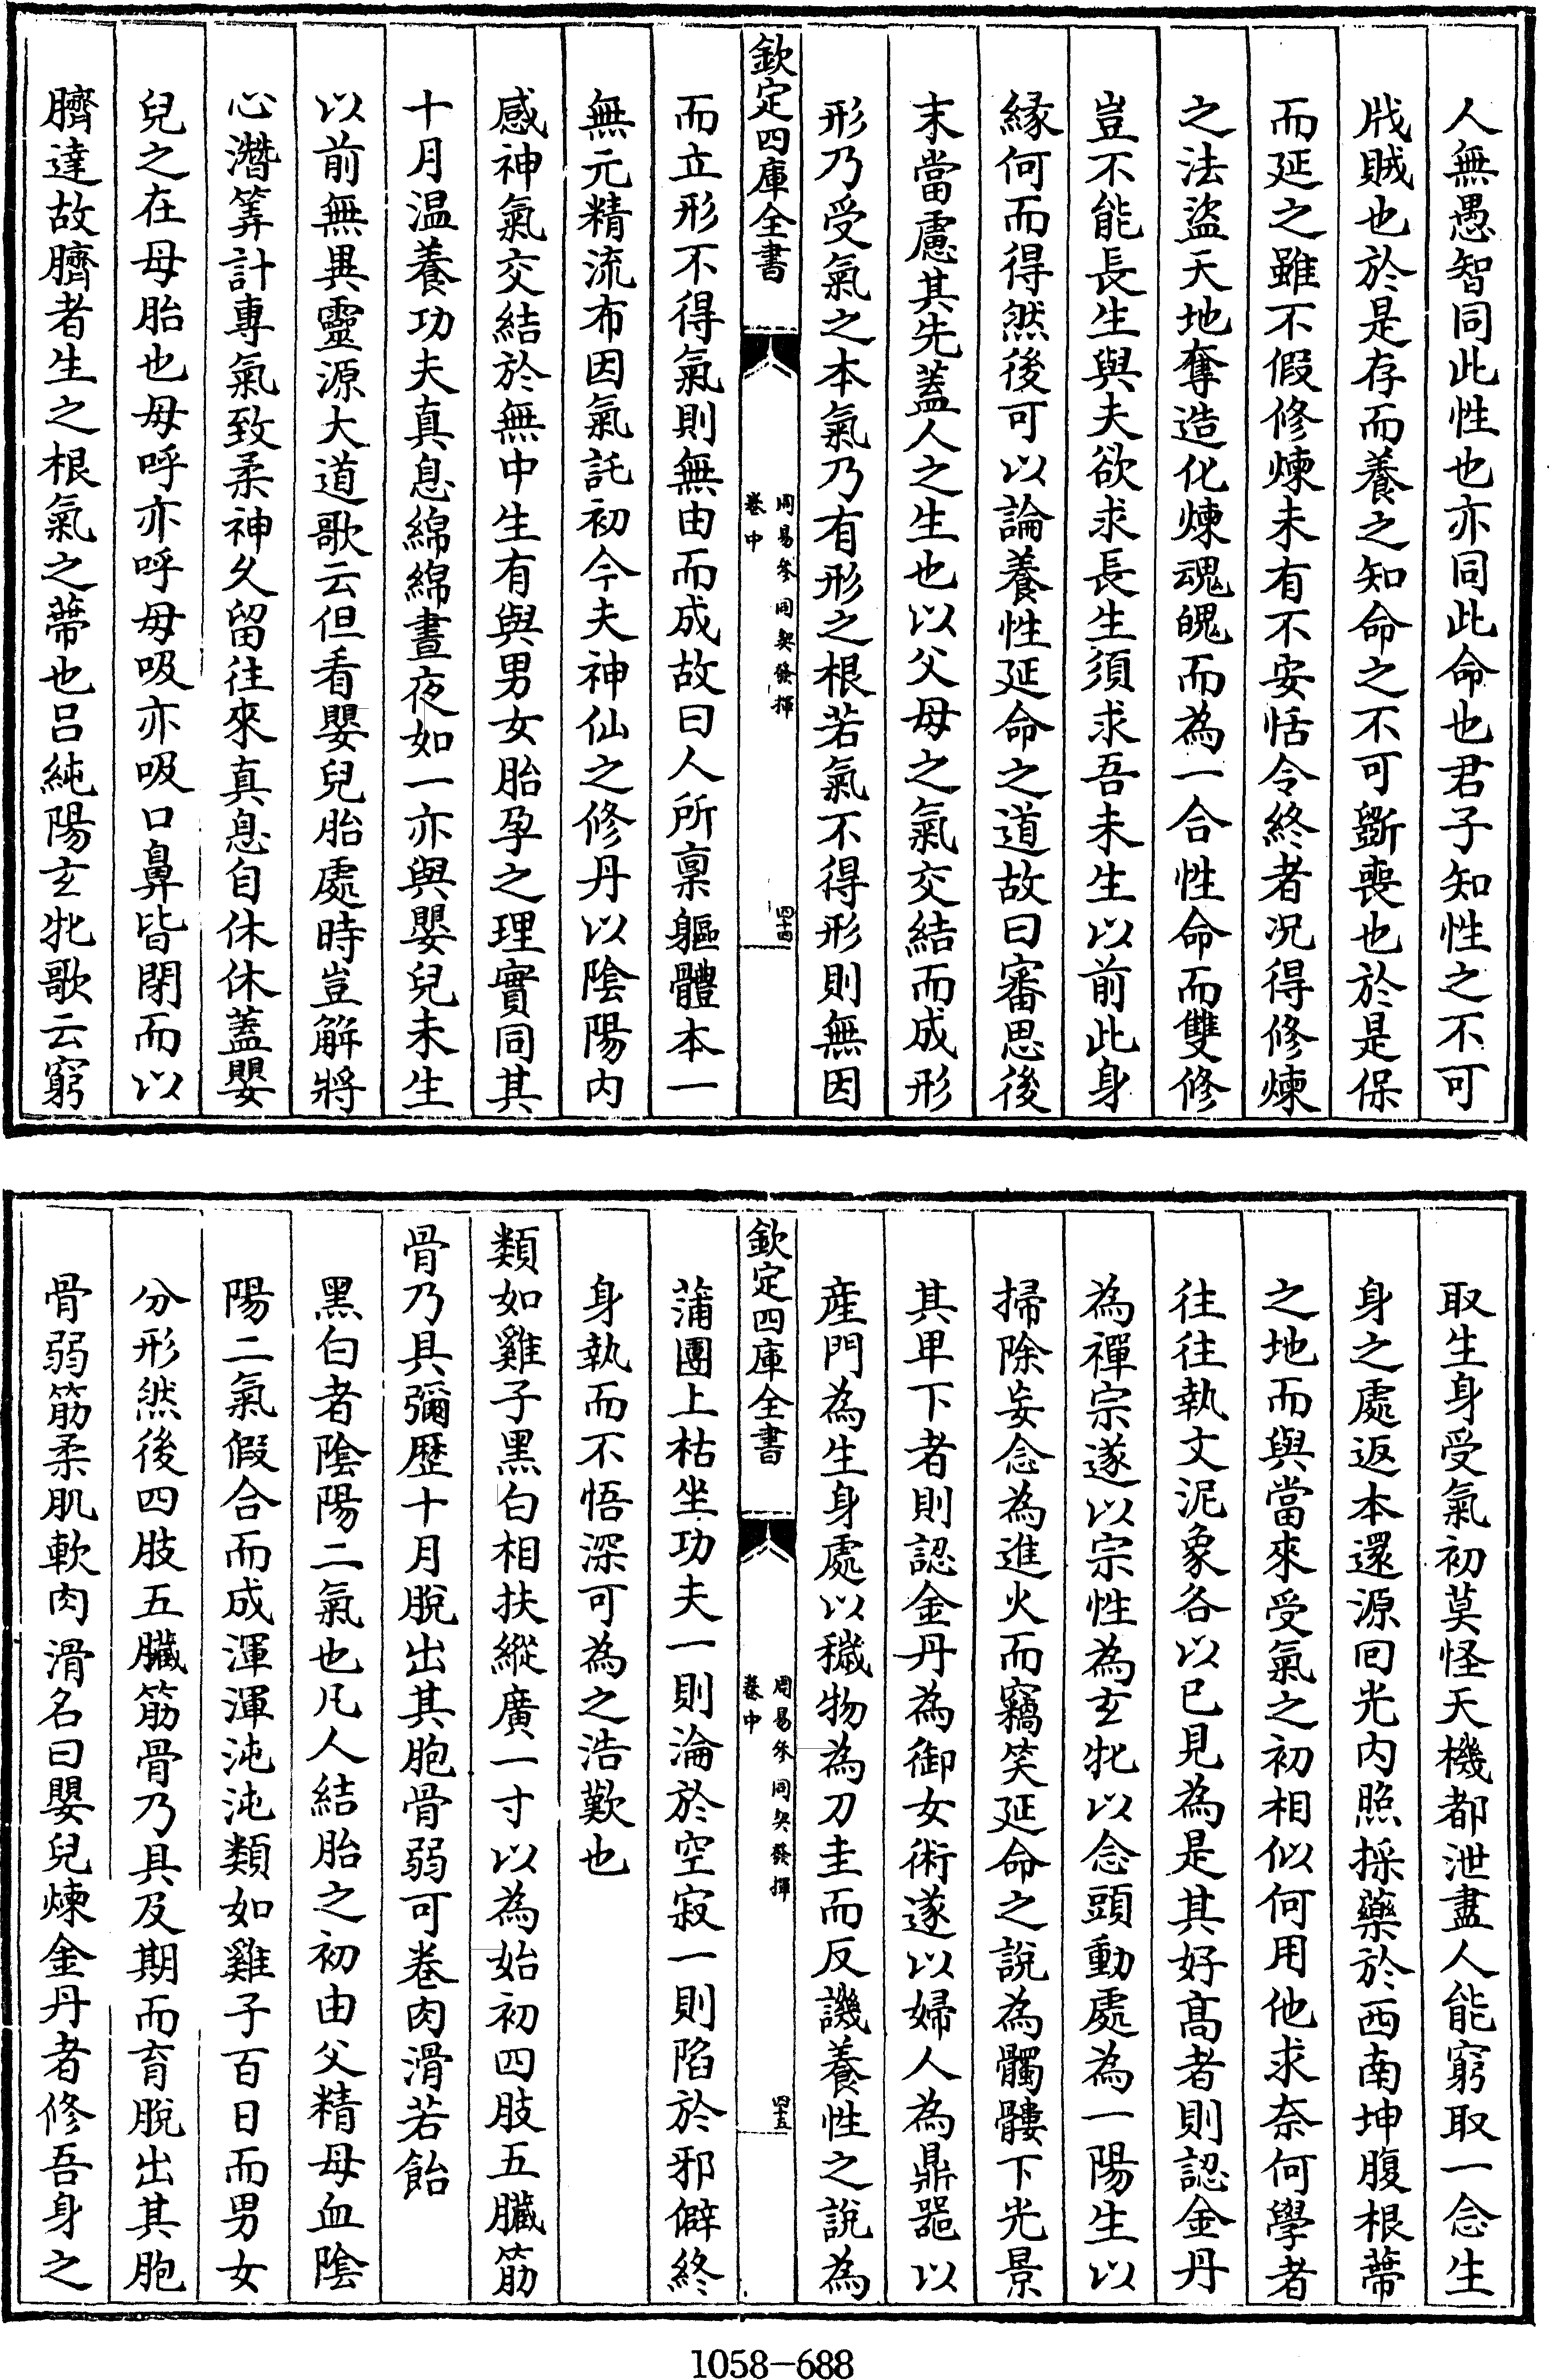 人無愚智同此性也亦同此命也君子知性之不可
戕賊也於是存而養之知命之不可斵喪也於是保
而延之雖不假修煉未有不安恬令終者況得修煉
之法盜天地奪造化煉魂魄而為一合性命而雙修
豈不能長生與夫欲求長生須求吾未生以前此身
緣何而得然後可以論養性延命之道故曰審思後
末當慮其先蓋人之生也以父母之氣交結而成形
形乃受氣之本氣乃有形之根若氣不得形則無因
欽定四庫全書
周易參同契發揮
卷中
四十四
而立形不得氣則無由而成故曰人所稟軀體本一
無元精流布因氣託初今夫神仙之修丹以陰陽內
感神氣交結於無中生有與男女胎孕之理實同其
十月温養功夫真息綿綿晝夜如一亦與嬰兒未生
以前無異靈源大道歌云但看嬰兒胎處時豈解將
心潛筭計專氣致柔神久留往來真息自休休蓋嬰
兒之在母胎也母呼亦呼母吸亦吸口鼻皆閉而以
臍達故臍者生之根氣之蔕也吕純陽玄牝歌云窮
取生身受氣初莫怪天機都泄盡人能窮取一念生
身之處返本還源回光內照採藥於西南坤腹根蔕
之地而與當來受氣之初相似何用他求奈何學者
往往執文泥象各以已見為是其好高者則認金丹
為禪宗遂以宗性為玄牝以念頭動處為一陽生以
掃除妄念為進火而竊笑延命之說為髑髏下光景
其卑下者則認金丹為御女術遂以婦人為鼎器以
産門為生身處以穢物為刀圭而反譏養性之說為
欽定四庫全書
周易參同契發揮
卷中
四十五
蒲團上枯坐功夫一則淪於空寂一則陷於邪僻終
身執而不悟深可為之浩歎也
類如雞子黑白相扶縱廣一寸以為始初四肢五臟筋
骨乃具彌歷十月脫出其胞骨弱可卷肉滑若飴
黑白者陰陽二氣也凡人結胎之初由父精母血陰
陽二氣假合而成渾渾沌沌類如雞子百日而男女
分形然後四肢五臟筋骨乃具及期而育脫出其胞
骨弱筋柔肌軟肉滑名曰嬰兒煉金丹者修吾身之
1058-688